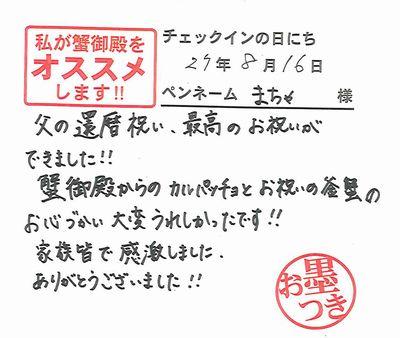 私が蟹御殿を
オススメ
します!!
チェックインの日にち
29年8月16日
ペンネーム まちゃ 様
父の還暦祝い、最高のお祝いが
できました!!
蟹御殿からのカルパッチョとお祝いの釜蟹の
お心づかい大変うれしかったです!!
家族皆で感激しました.
ありがとうございました!!
お墨つき